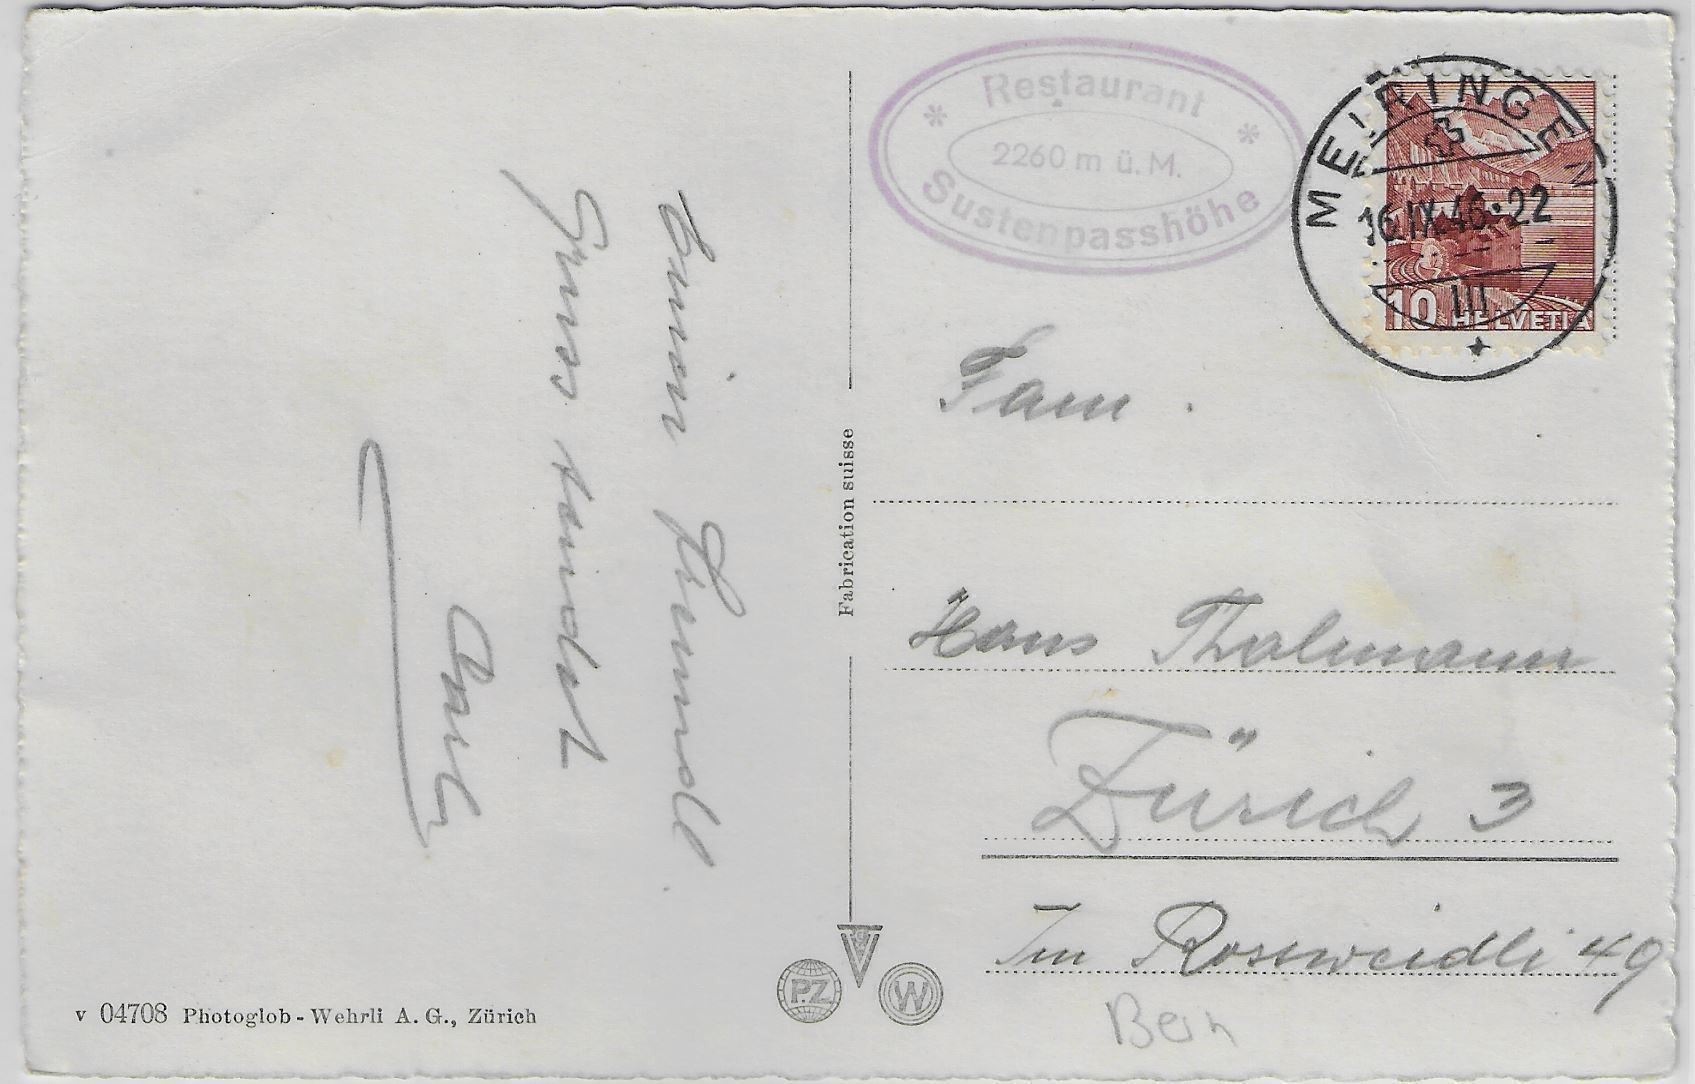 Restaurant
2260 m ü. M.
Sustenpasshöhe
MEIRINGEN
16.IX.46.-22
III
10 HELVETIA
Gruss sendet
Fabrication suisse
Fam.
Hans Thalmann
Zürich 3
Im Rosweidli 49
Bern
v 04708 Photoglob - Wehrli A. G., Zürich
P.Z
W